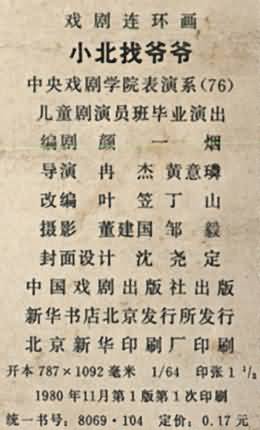 戏剧连环画
小北找爷爷
中央戏剧学院表演系(76)
儿童剧演员班毕业演出
编剧 颜一烟
导演 冉杰 黄意璘
改编 叶笠 丁山
摄影 董建国 邹毅
封面设计 沈尧定
中国戏剧出版社出版
新华书店北京发行所发行
北京新华印刷厂印刷
开本787×1092毫米 1/64 印张1 1/2
1980年11月第1版第1次印刷
统一书号：8069·104 定价：0.17元